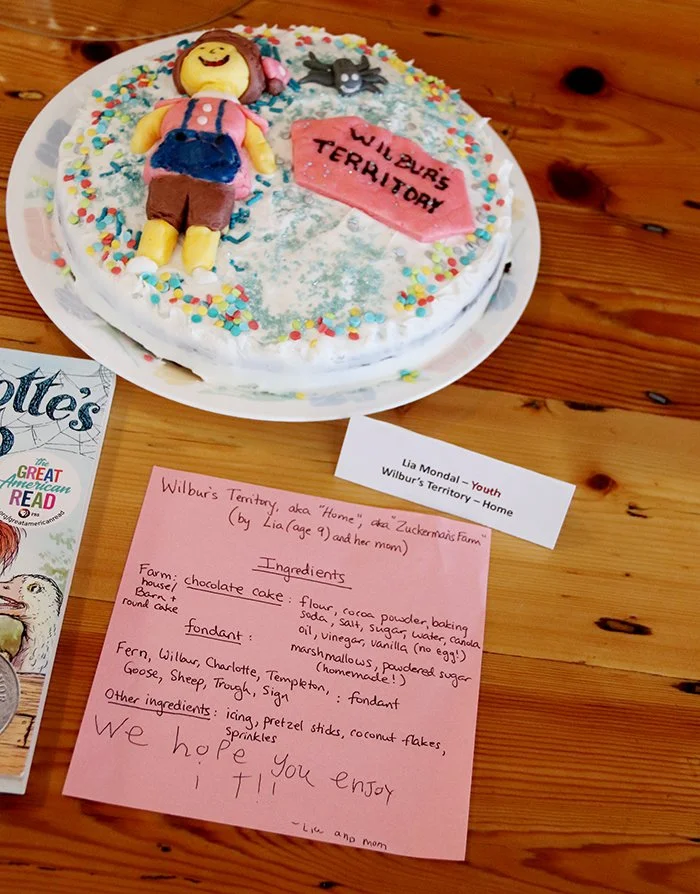 WILBUR'S
TERRITORY
otte's
the
GREAT
American
READ
PBS
.org/greatamericanread
Lia Mondal – Youth
Wilbur's Territory – Home
Wilbur's Territory, aka "Home", aka "Zuckerman's Farm"
(by Lia (age 9) and her mom)
Ingredients
Farm:
house/
Barn +
round cake
chocolate cake : flour, cocoa powder, baking
soda, salt, sugar, water, canola
oil, vinegar, vanilla (no egg!)
fondant : marshmallows, powdered sugar
(homemade!)
Fern, Wilbur, Charlotte, Templeton,
Goose, Sheep, Trough, Sign : fondant
Other ingredients : icing, pretzel sticks, coconut flakes,
sprinkles
We hope you enjoy
iT!!
-Lia and mom